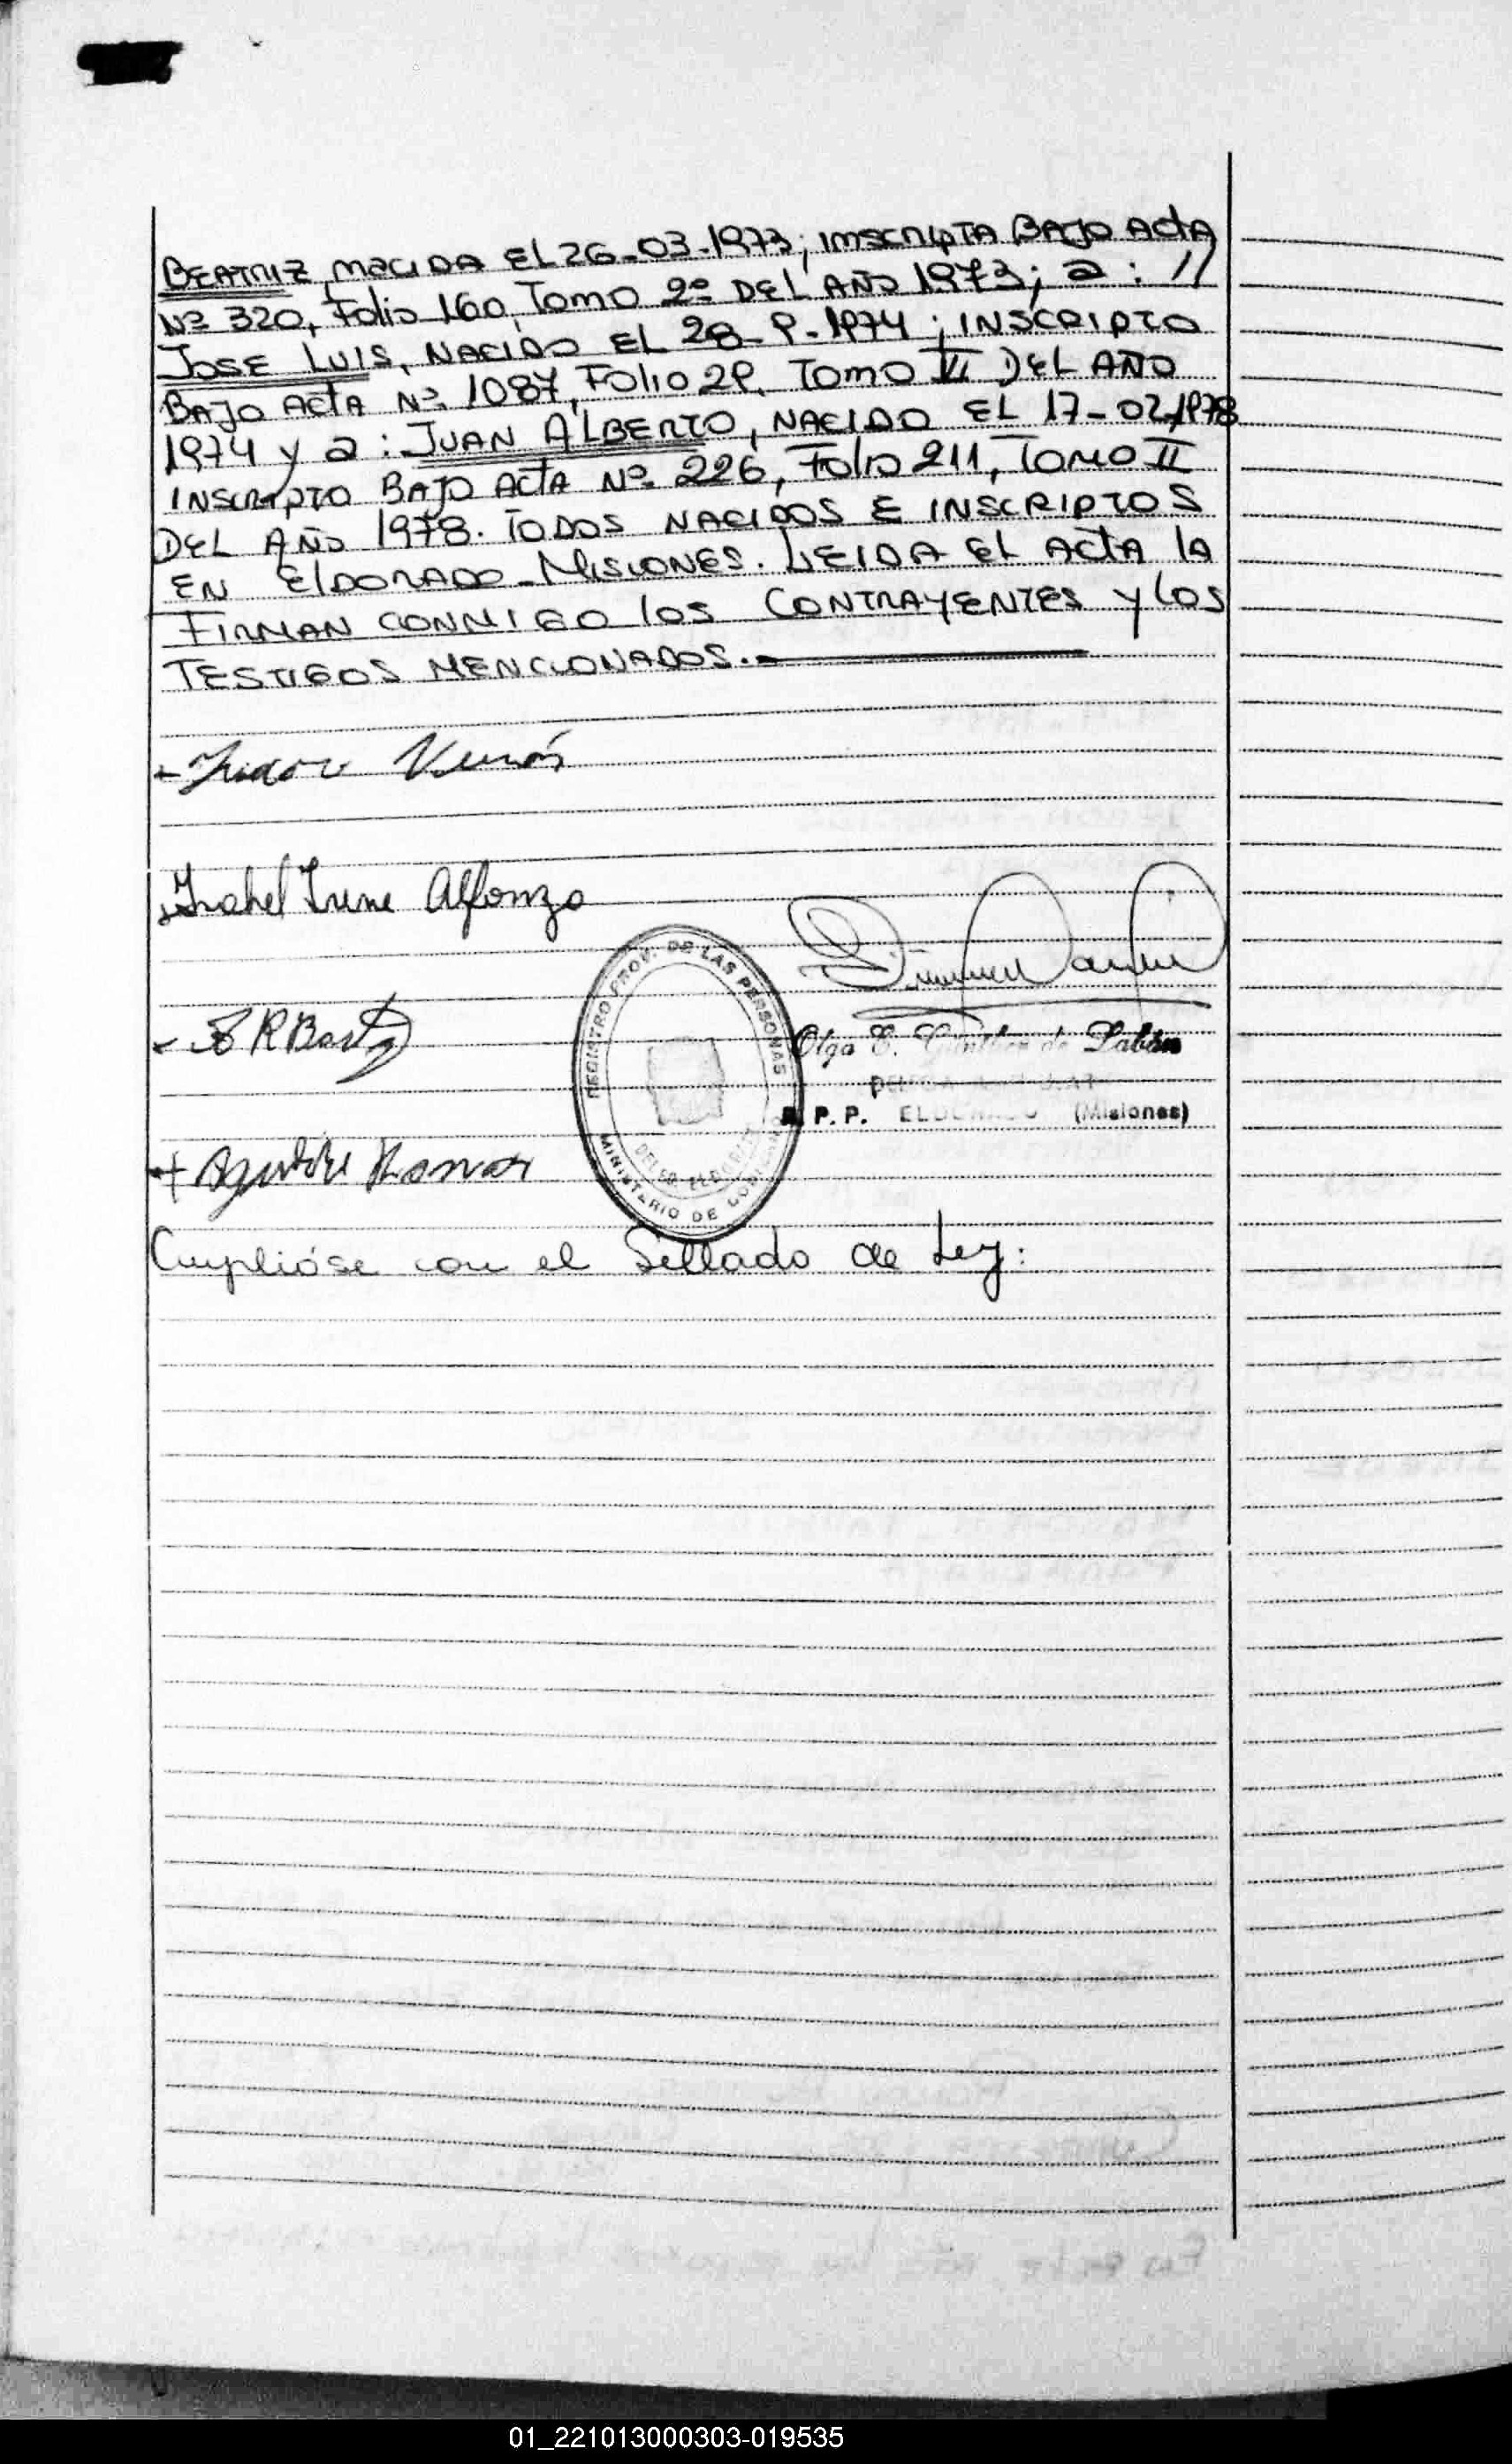 BEATRIZ, nacida EL 26-03-1973; inscripta BAJO ActA
Nº 320, Folio 160, Tomo 2º DEL AÑO 1973; a: //
JOSE LUIS, NACIDO EL 28-9-1974; INSCRIPTO
BAJO ActA Nº 1087, Folio 29, Tomo VI DEL AÑO
1974 y a: JUAN ALBERTO, NACIDO EL 17-02-1978
INSCRIPTO BAJO ActA Nº 226, Folio 211, TOMO II
DEL AÑO 1978. TODOS NACIDOS E INSCRIPTOS
EN ELDORADO-MISIONES. LEIDA EL ActA LA
FIRMAN CONMIGO los CONTRAYENTES y LOS
TESTIGOS MENCIONADOS.-
Isabel Irene Alfonzo
REGISTRO PROV. DE LAS PERSONAS
MINISTERIO DE
Olga E. de
R. P. P. ELDORADO (Misiones)
Cumplióse con el Sellado de Ley:
01_221013000303-019535